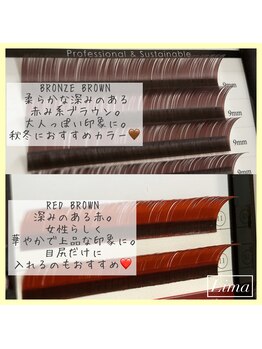 Professional & Sustainable
BRONZE BROWN
柔らかな深みのある
赤み系ブラウン。
大人っぽい印象に。
秋冬におすすめカラー🤎
9mm
9mm
9mm
RED BROWN
深みのある赤。
女性らしく
華やかで上品な印象に。
目尻だけに
入れるのもおすすめ❤️
11
11
Lima